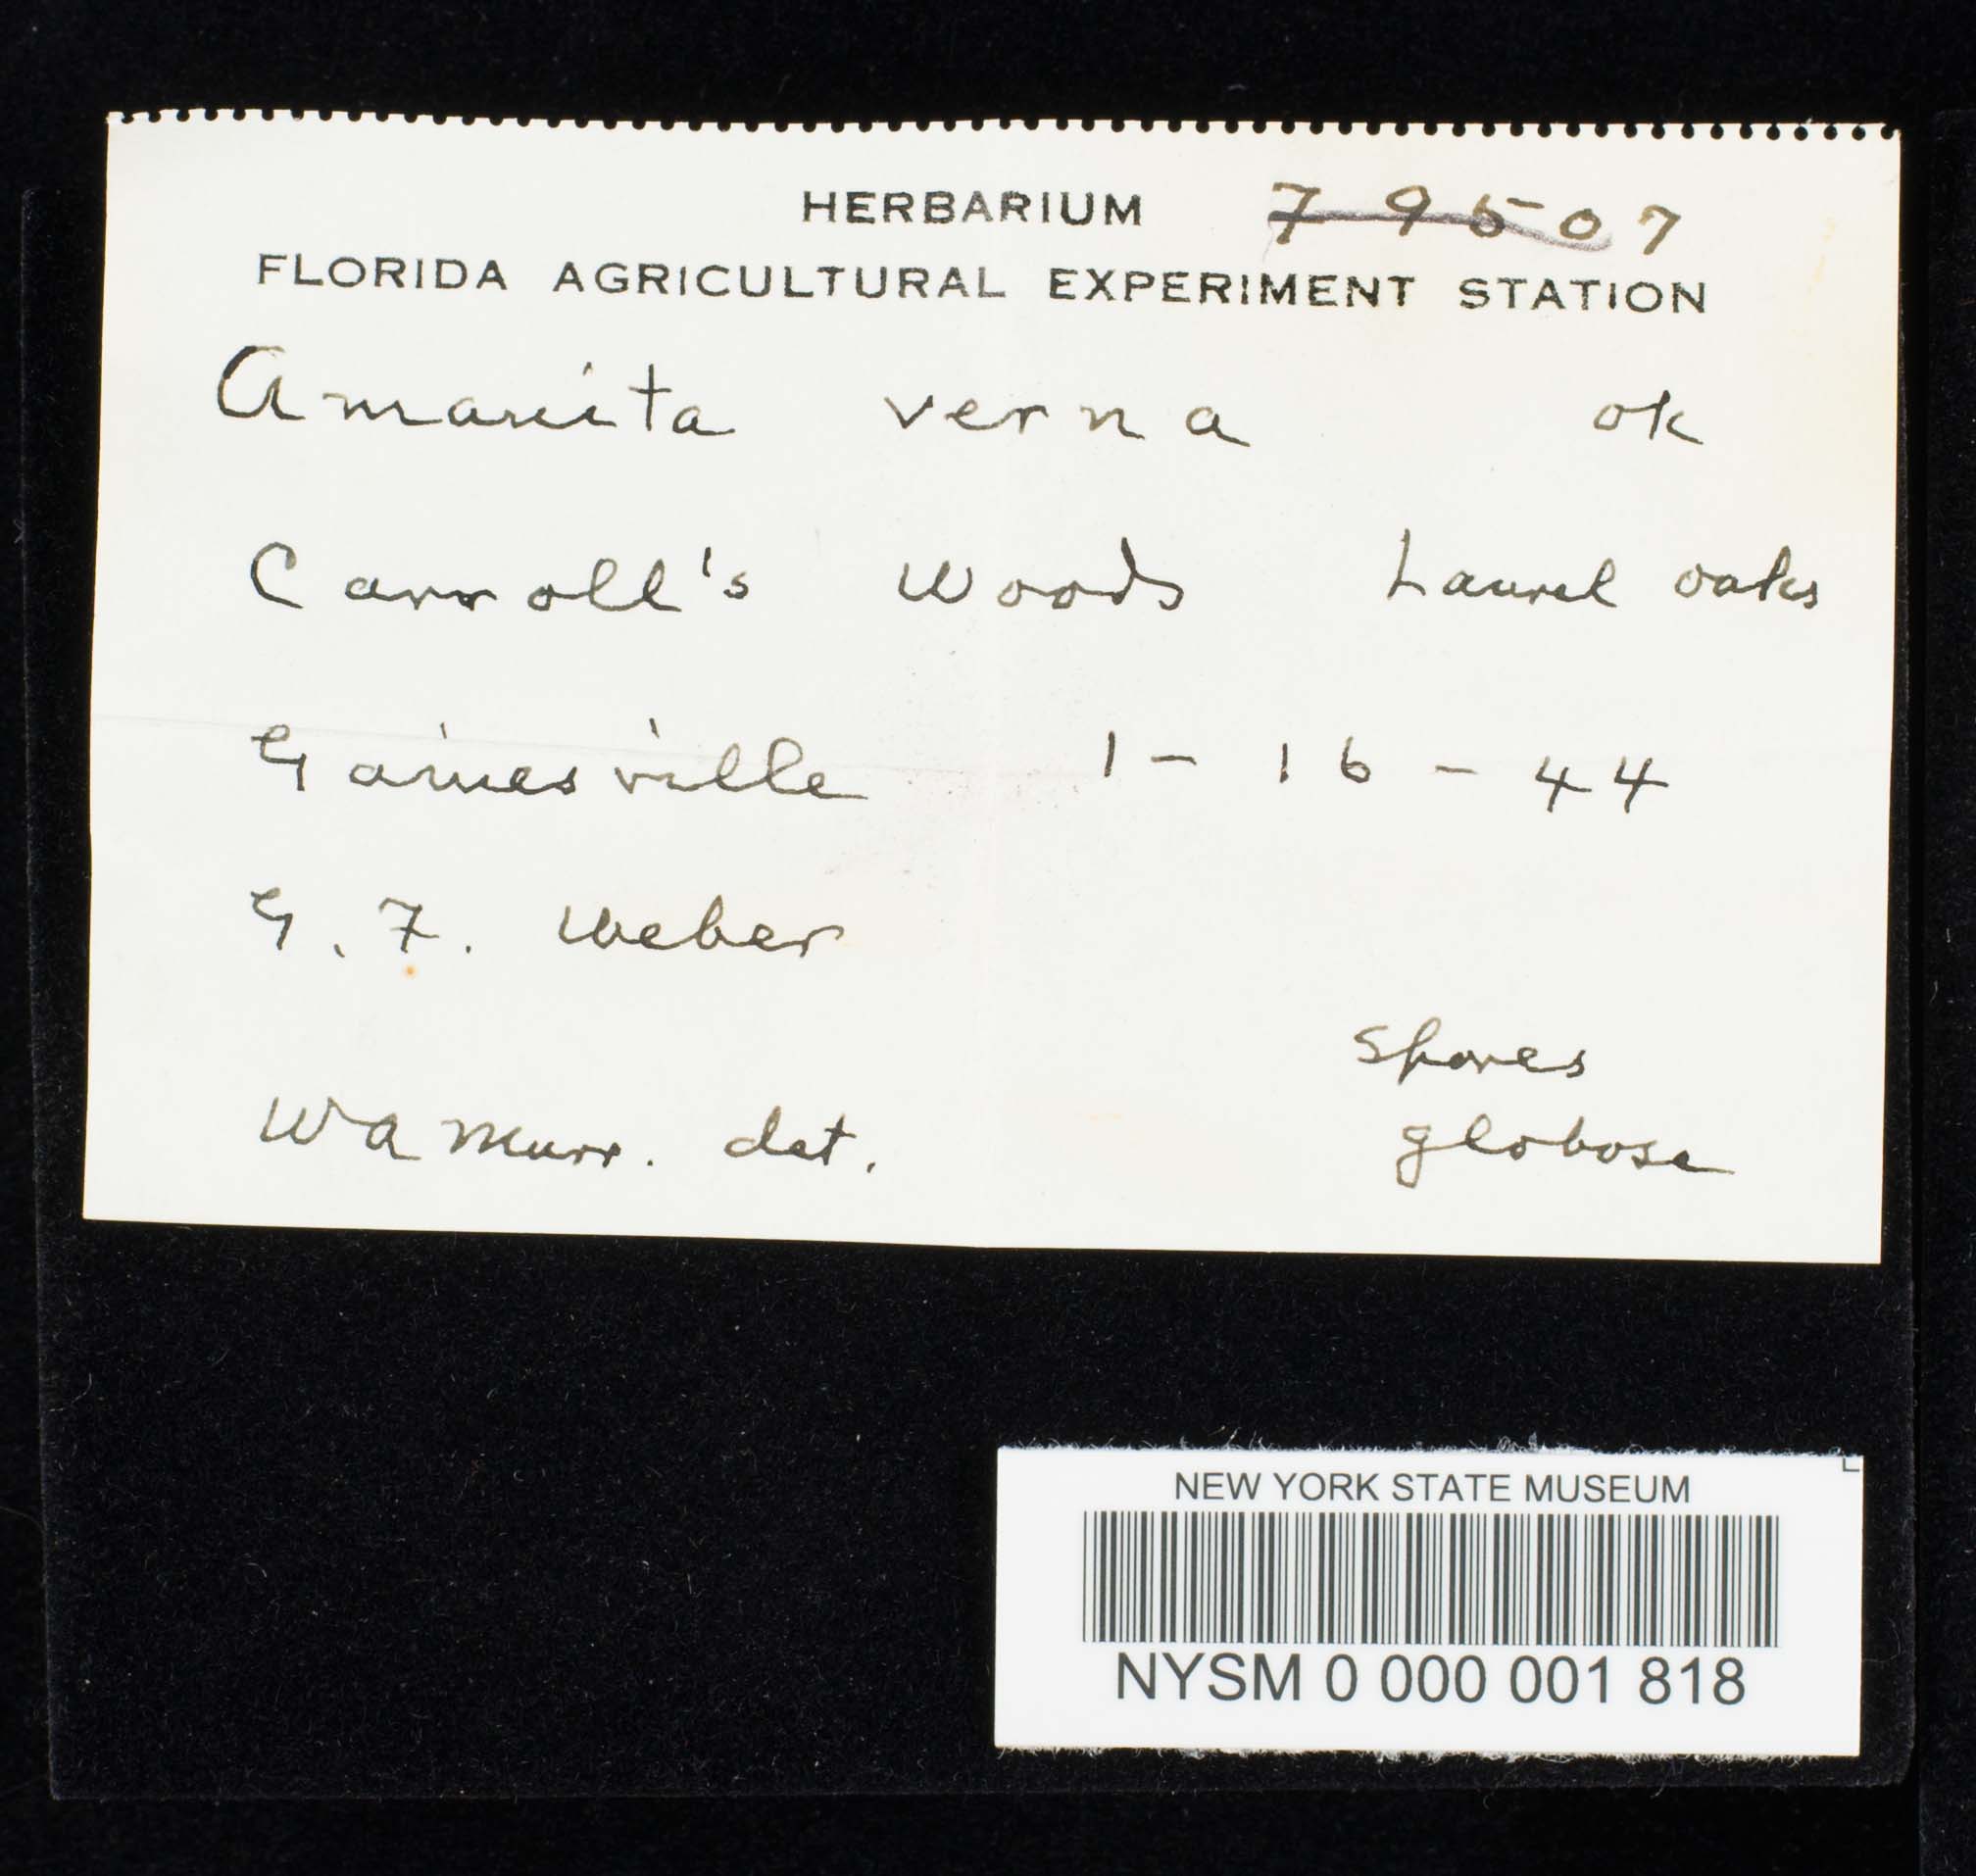 HERBARIUM 79507
FLORIDA AGRICULTURAL EXPERIMENT STATION
Amanita verna ok
Carroll's Woods Laurel oaks
Gainesville 1-16-44
G. F. Weber
Spores
WA Murr. det. globose
NEW YORK STATE MUSEUM
NYSM 0 000 001 818